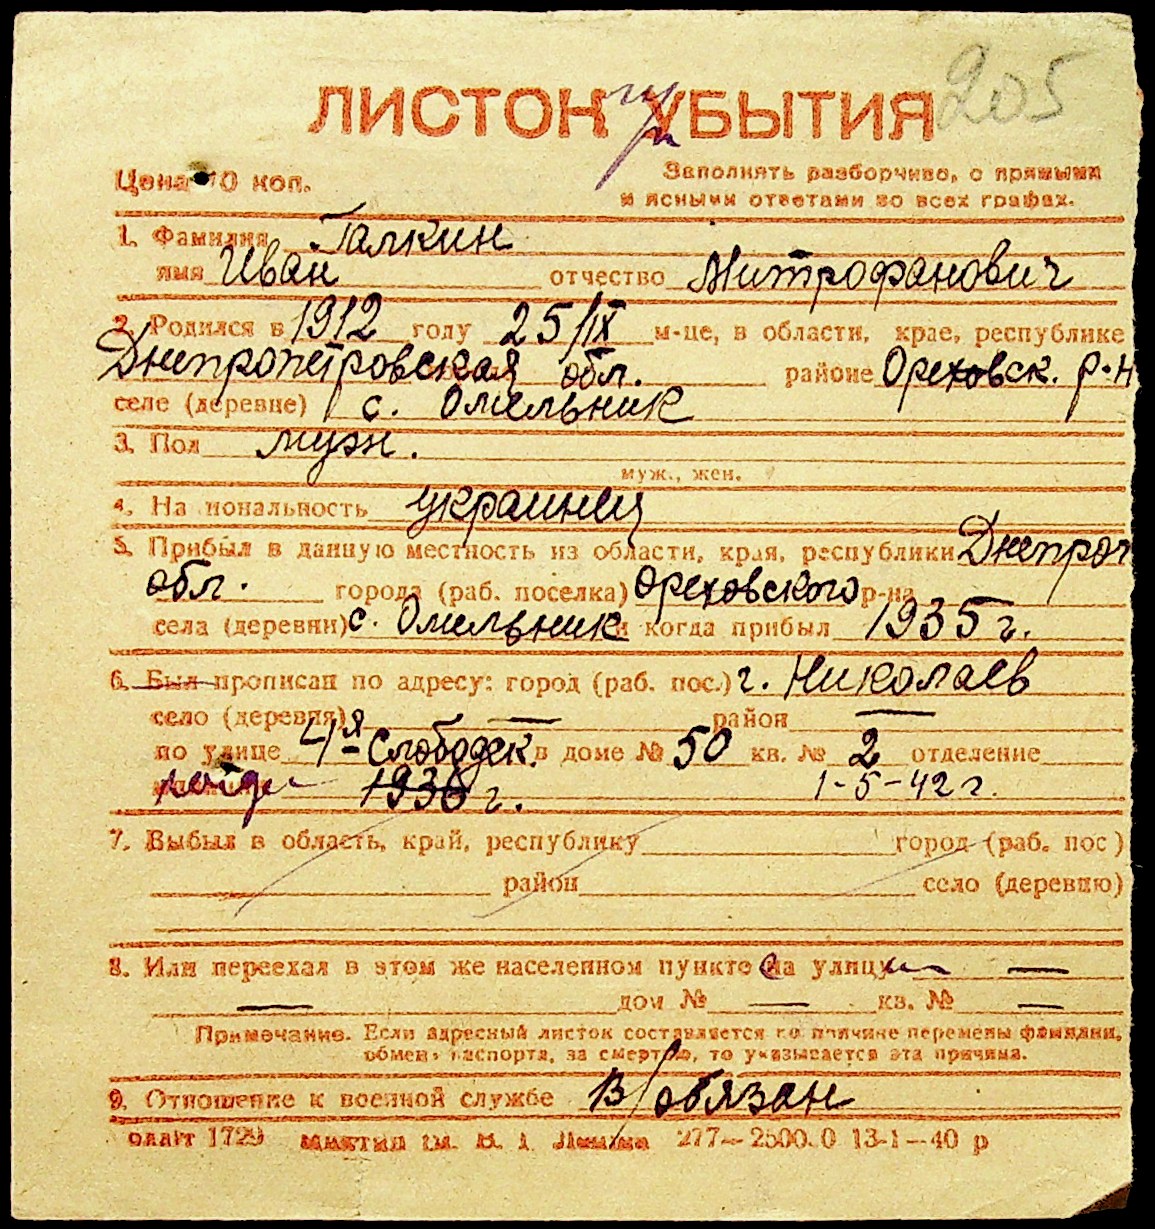 205
ЛИСТОК УБЫТИЯ
Цена 10 коп.
Заполнять разборчиво, с прямыми
и ясными ответами во всех графах.
1. Фамилия Галкин
имя Иван отчество Митрофанович
2. Родился в 1912 году 25/IX м-це, в области, крае, республике
Днепропетровская обл. районе Ореховск. р-н
селе (деревне) с. Омельник
3. Пол муж.
муж., жен.
4. Национальность украинец
5. Прибыл в данную местность из области, края, республики Днепроп
обл. города (раб. поселка) Ореховского р-на
села (деревни) с. Омельник и когда прибыл 1935 г.
6. Был прописан по адресу: город (раб. пос.) г. Николаев
село (деревня) — район —
по улице 4я Слободск. в доме № 50 кв. № 2 отделение
1936 г. 1-5-42 г.
7. Выбыл в область, край, республику город (раб. пос)
район село (деревню)
8. Или переехал в этом же населенном пункте на улицу —
— дом № — кв. № —
Примечание. Если адресный листок составляется по причине перемены фамилии,
обмена паспорта, за смертью, то указывается эта причина.
9. Отношение к военной службе В/обязан
1729 277—2500.0 13-1—40 р